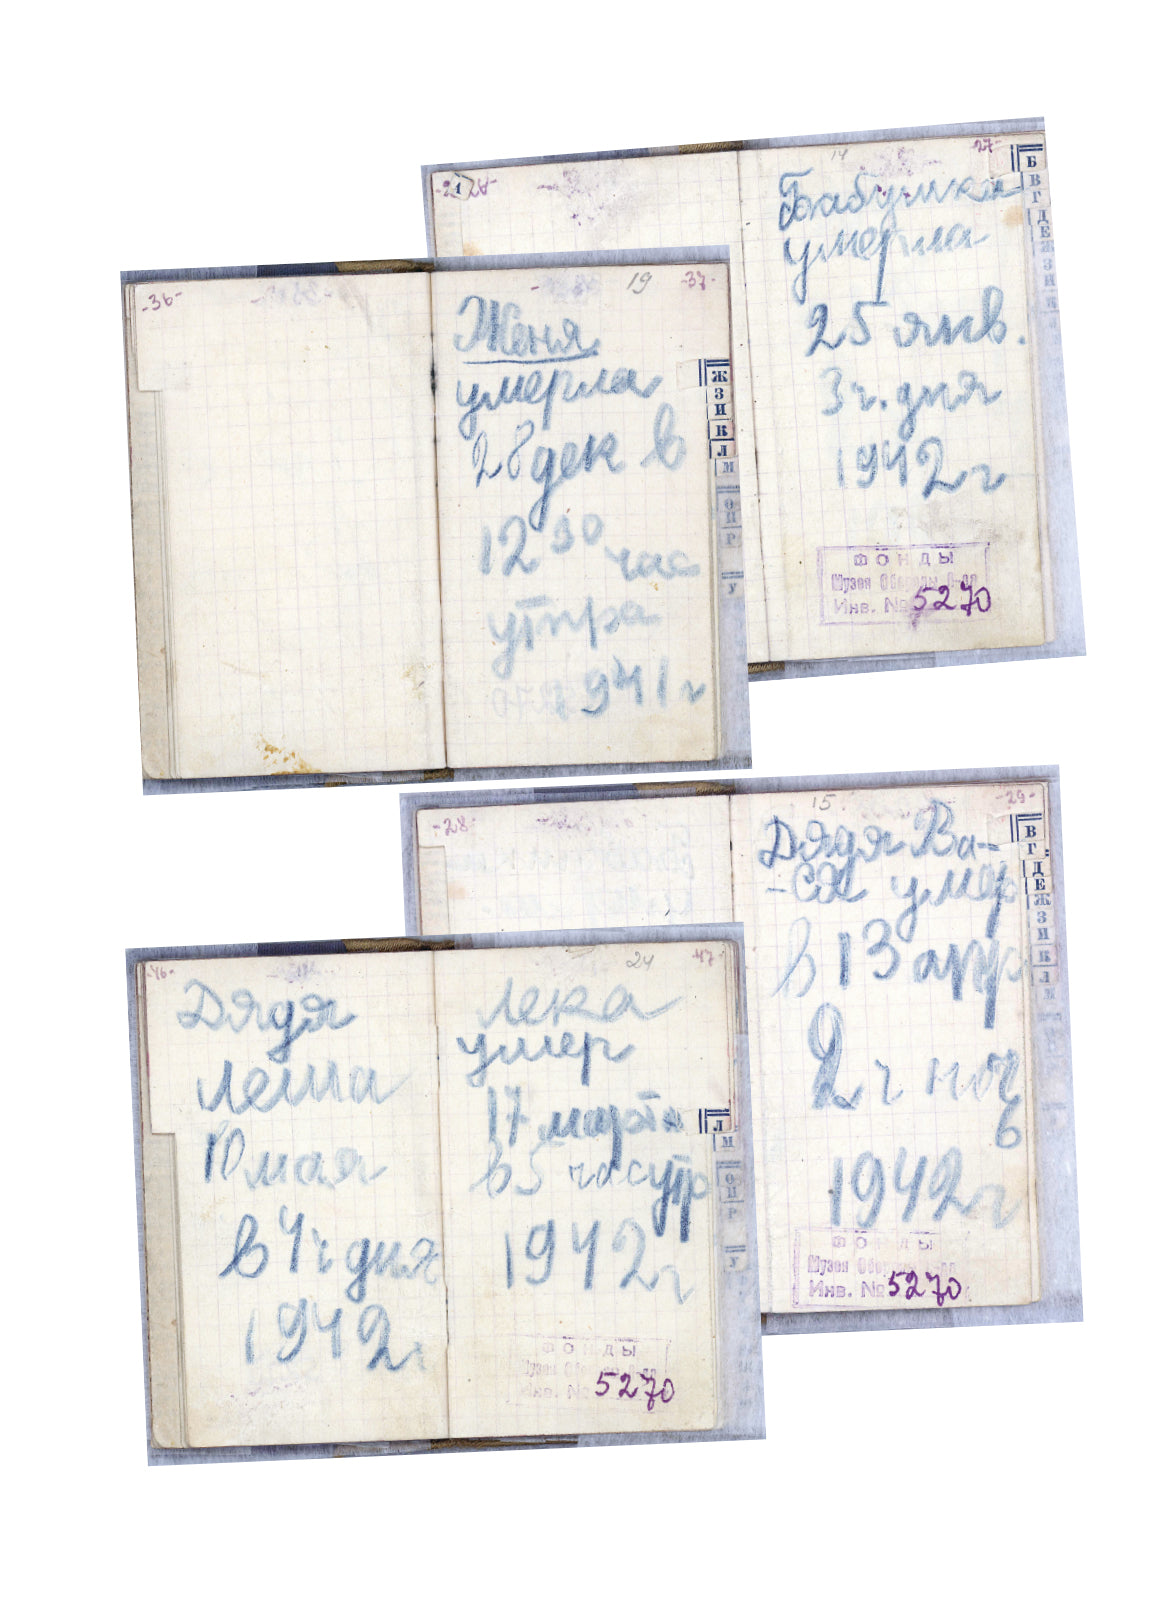 -36-
19
-37-
Женя
умерла
28 дек в
12 30 час
утра
1941 г
Ж
З
И
К
Л
М
О
П
Р
У
14
-27-
Бабушка
умерла
25 янв.
3 ч. дня
1942 г
ФОНДЫ
Музея
Инв. № 5270
Б
В
Г
Д
Е
Ж
З
И
К
-46-
Дядя
Леша
10 мая
в 4 ч дня
1942 г
24
-47-
Лека
умер
17 марта
в 5 часутр
1942 г
ФОНДЫ
Музея
Инв. № 5270
Л
М
О
П
Р
У
-28-
15
-29-
Дядя Ва-
-ся умер
в 13 апр
2 ч ноч
ь
1942 г
ФОНДЫ
Музея
Инв. № 5270
В
Г
Д
Е
Ж
З
И
К
Л
М